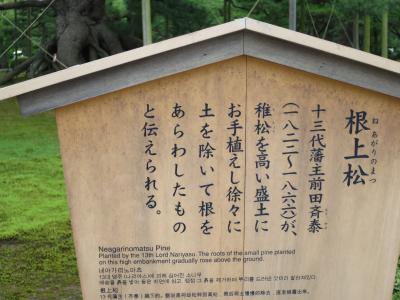 根上松
ねあがりのまつ
十三代藩主前田斉泰
（一八二二〜一八六六）が、
稚松を高い盛土に
お手植えし徐々に
土を除いて根を
あらわしたもの
と伝えられる。
Neagarinomatsu Pine
Planted by the 13th Lord Nariyasu. The roots of the small pine planted
on this high embankment gradually rose above the ground.
네아가리노마츠
根上松